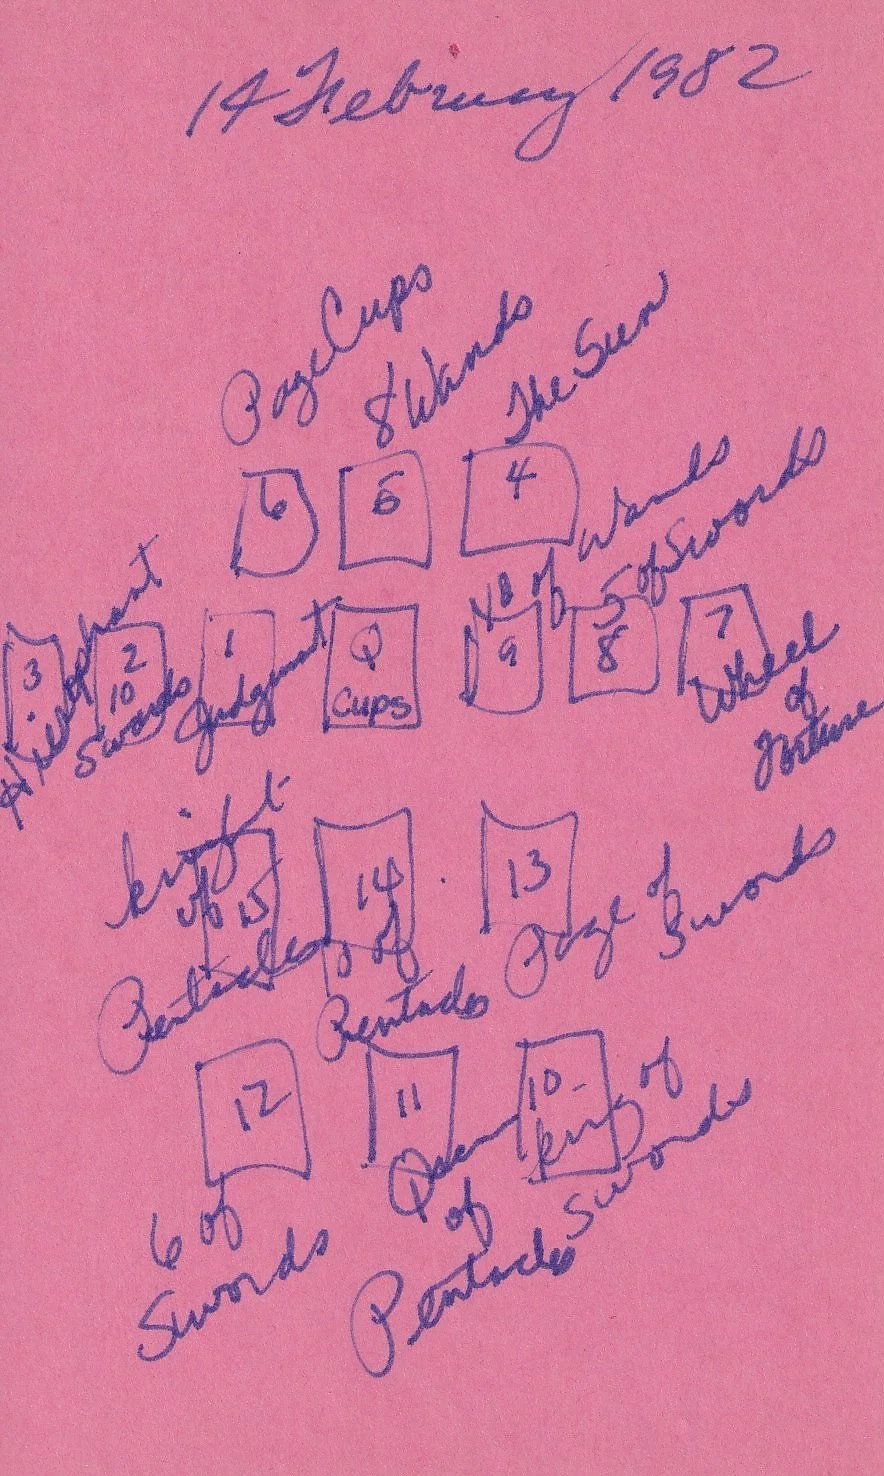 14 February 1982
Page Cups
8 Wands
The Sun
6
5
4
of Wands
5 of Swords
3
Hierophant
2
10
Swords
1
Judgment
Q
Cups
9
8
7
Wheel
of
Fortune
knight
of
Pentacles
15
14
of
Pentacles
13
Page of
Swords
12
6 of
Swords
11
Queen
of
Pentacles
10
king of
Swords